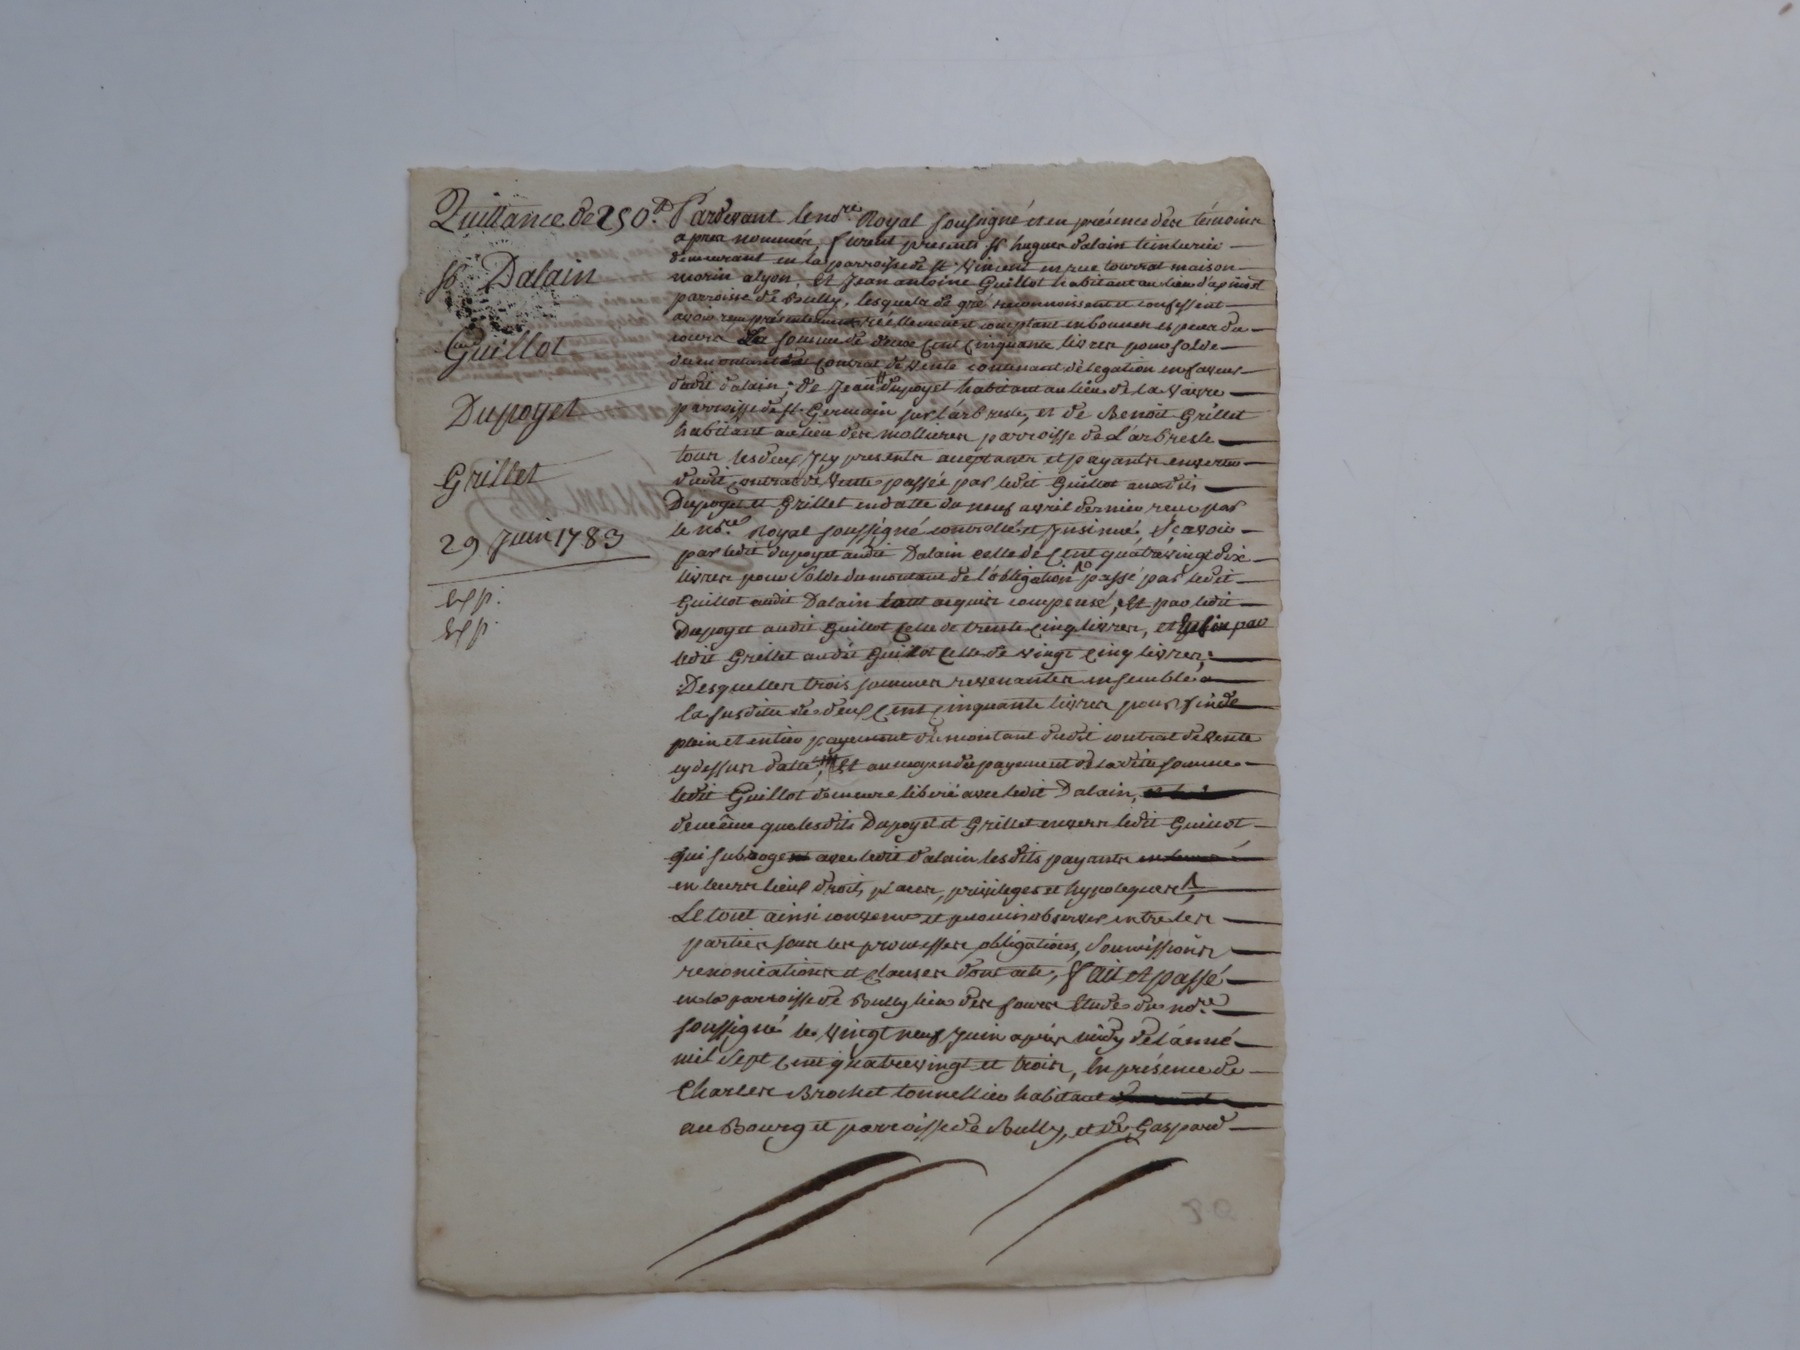 Quittance de 250.tt
sr. Dalain
Guillot
Dupoyet
Grillet
29 juin 1783
Exp.
Exp.
Pardevant le nore. Royal soussigné et en présence des témoins
apres nommés, furent présents sr. hugues dalain teinturier
demeurant en la parroisse de st. vincent en rue tourrat maison
morin a lyon, et Jean antoine Guillot habitant au lieu d'apinost
parroisse de Bully, lesquels de gré reconnoissent et confessent
avoir reçu présentement réellement et comptant en bonnes especes du
cours la somme de deux cent cinquante livres pour solde
du montant du contrat de vente contenant délegation en faveur
dudit dalain, de Jean dupoyet habitant au lieu de la vavre
parroisse de st. Germain sur l'arbresle, et de Benoit Grillet
habitant au lieu des mollieres parroisse de L'arbresle
tous les deux icy presents acceptants et payants en vertu
dudit contrat de vente passée par ledit Guillot auxdits
Dupoyet et Grillet en datte du neuf avril dernier reçu par
le nore. Royal soussigné controllé et insinué, sçavoir
par ledit dupoyet audit Dalain celle de cent quatrevingt dix
livres pour solde du montant de l'obligation passé par ledit
Guillot audit Dalain tout acquis compensé, et par ledit
Dupoyet audit Guillot celle de trente cinq livres, et enfin par
ledit Grillet audit Guillot celle de vingt cinq livres,
Desquelles trois sommes revenantes ensemble a
la susditte de deux cent cinquante livres pour fin de
plein et entier payement du montant dudit contrat de vente
cy dessus datté, Et au moyen du payement de la dite somme
ledit Guillot demeure liberé avec ledit Dalain,
de même que lesdits Dupoyet et Grillet envers ledit Guillot
qui subroge avec ledit dalain lesdits payants
en leurs lieux droits, places, privileges et hypoteques,
Le tout ainsi convenu et promis observer entre les
parties sous les promesses, obligations, soumissions
renonciations et clauses dont acte, fait et passé
en la parroisse de Bully lieu des fours Etude du nore.
soussigné le vingt neuf juin après midy de l'anné
mil sept cent quatrevingt et trois, En présence de
Charles Brochet tonnellier habitant
au Bourg et parroisse de Bully, et de Gaspard